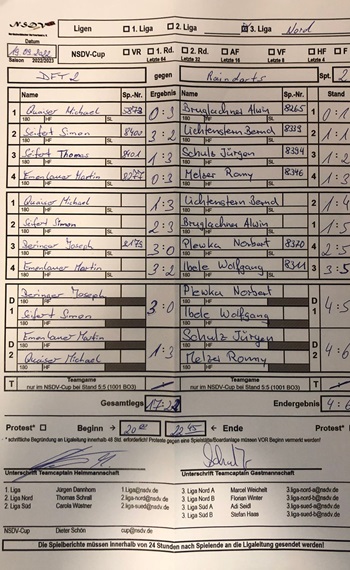 NSDV
Ligen □ 1. Liga □ 2. Liga ☒ 3. Liga Nord
Datum
Saison 2022/2023
NSDV-Cup □ VR □ 1. Rd. □ 2. Rd. □ AF □ VF □ HF □ F
Letzte 64 Letzte 32 Letzte 16 Letzte 8 Letzte 4
DFT 2 gegen Raindarts Spt. 2
Name Sp.-Nr. Ergebnis Name Sp.-Nr. Stand
1 Quaiser Michael 5873 0:3 Bruglachner Alwin 8265 0:1
180 HF SL 180 HF SL
2 Seifert Simon 8400 3:2 Lichtenstern Bernd 8339 1:1
180 HF SL 180 HF SL
3 Seifert Thomas 8401 1:3 Schulz Jürgen 8394 1:2
180 HF SL 180 HF SL
4 Emenlauer Martin 0:3 Melzer Romy 8346 1:3
180 HF SL 180 HF SL
1 Quaiser Michael 1:3 Lichtenstern Bernd 1:4
180 HF SL 180 HF SL
2 Seifert Simon 2:3 Bruglachner Alwin 1:5
180 HF SL 180 HF SL
3 Deringer Joseph 2173 3:0 Plewka Norbert 8320 2:5
180 HF SL 180 HF SL
4 Emenlauer Martin 3:2 Ibele Wolfgang 8311 3:5
180 HF SL 180 HF SL
D 1 Deringer Joseph 3:0 Plewka Norbert D 1 4:5
180 HF 180 HF
Seifert Simon Ibele Wolfgang
180 HF 180 HF
D 2 Emenlauer Martin 1:3 Schulz Jürgen D 2 4:6
180 HF 180 HF
Quaiser Michael Melzer Romy
180 HF 180 HF
T Teamgame T Teamgame
nur im NSDV-Cup bei Stand 5:5 (1001 BO3) nur im NSDV-Cup bei Stand 5:5 (1001 BO3)
Gesamtlegs 17:22 Endergebnis 4:6
Protest* □ Beginn → 20 45 ← Ende Protest* □
* schriftliche Begründung an Ligaleitung innerhalb 48 Std. erforderlich! Proteste gegen eine Spielstätte/Boardanlage müssen VOR Beginn vermerkt werden!
Unterschrift Teamcaptain Heimmannschaft Unterschrift Teamcaptain Gastmannschaft
1. Liga Jürgen Dannhorn 1.Liga@nsdv.de 3. Liga Nord A Marcel Weichelt 3.liga-nord-a@nsdv.de
2. Liga Nord Thomas Schnall 2.liga-nord@nsdv.de 3. Liga Nord B Florian Winter 3.liga-nord-b@nsdv.de
2. Liga Süd Carola Wüstner 2.liga-sued@nsdv.de 3. Liga Süd A Adi Seidl 3.liga-sued-a@nsdv.de
3. Liga Süd B Stefan Haas 3.liga-sued-b@nsdv.de
NSDV-Cup Dieter Schön cup@nsdv.de
Die Spielberichte müssen innerhalb von 24 Stunden nach Spielende an die Ligaleitung gesendet werden!